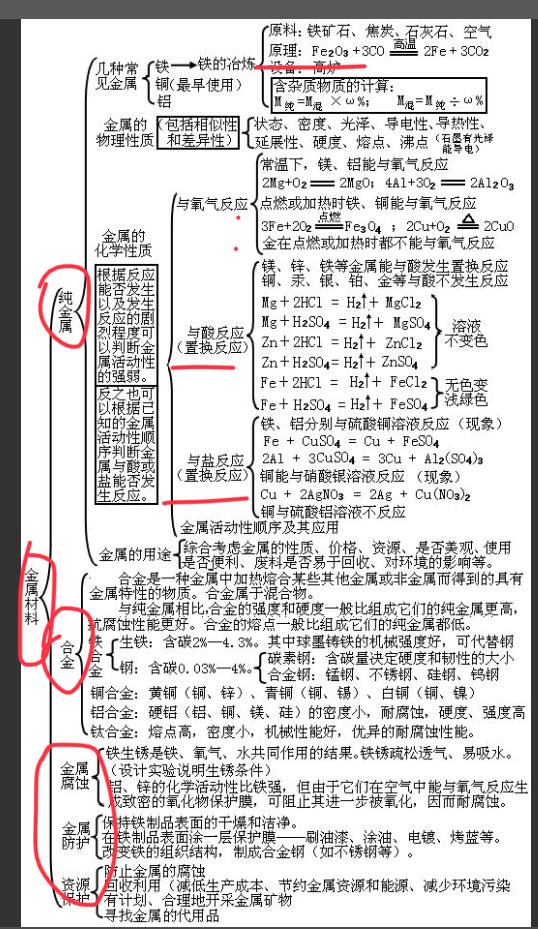 金属材料
纯金属
几种常见金属
铁→铁的冶炼
原料：铁矿石、焦炭、石灰石、空气
原理：Fe₂O₃ +3CO 高温 2Fe + 3CO₂
设备：高炉
铜(最早使用)
铝
含杂质物质的计算:
M纯=M混 × ω%； M混=M纯 ÷ ω%
金属的物理性质
(包括相似性和差异性)
状态、密度、光泽、导电性、导热性、
延展性、硬度、熔点、沸点(石墨有光泽能导电)
金属的化学性质
根据反应能否发生以及发生反应的剧烈程度可以判断金属活动性的强弱。
反之也可以根据已知的金属活动性顺序判断金属与酸或盐能否发生反应。
与氧气反应
常温下，镁、铝能与氧气反应
2Mg+O₂ ══ 2MgO；4Al+3O₂ ══ 2Al₂O₃
点燃或加热时铁、铜能与氧气反应
3Fe+2O₂ 点燃 Fe₃O₄ ；2Cu+O₂ △ 2CuO
金在点燃或加热时都不能与氧气反应
与酸反应
(置换反应)
镁、锌、铁等金属能与酸发生置换反应
铜、汞、银、铂、金等与酸不发生反应
Mg + 2HCl = H₂↑+ MgCl₂
Mg + H₂SO₄ = H₂↑+ MgSO₄
Zn + 2HCl = H₂↑+ ZnCl₂
Zn + H₂SO₄= H₂↑+ ZnSO₄
溶液不变色
Fe + 2HCl = H₂↑+ FeCl₂
Fe + H₂SO₄ = H₂↑+ FeSO₄
无色变浅绿色
与盐反应
(置换反应)
铁、铝分别与硫酸铜溶液反应（现象）
Fe + CuSO₄ = Cu + FeSO₄
2Al + 3CuSO₄ = 3Cu + Al₂(SO₄)₃
铜能与硝酸银溶液反应（现象）
Cu + 2AgNO₃ = 2Ag + Cu(NO₃)₂
铜与硫酸铝溶液不反应
金属活动性顺序及其应用
金属的用途
综合考虑金属的性质、价格、资源、是否美观、使用
是否便利、废料是否易于回收、对环境的影响等。
合金
合金是一种金属中加热熔合某些其他金属或非金属而得到的具有
金属特性的物质。合金属于混合物。
与纯金属相比,合金的强度和硬度一般比组成它们的纯金属更高,
抗腐蚀性能更好。合金的熔点一般比组成它们的纯金属都低。
铁合金
生铁：含碳2%—4.3%。其中球墨铸铁的机械强度好，可代替钢
钢：含碳0.03%—4%。
碳素钢：含碳量决定硬度和韧性的大小
合金钢：锰钢、不锈钢、硅钢、钨钢
铜合金：黄铜（铜、锌）、青铜（铜、锡）、白铜（铜、镍）
铝合金：硬铝（铝、铜、镁、硅）的密度小，耐腐蚀，硬度、强度高
钛合金：熔点高，密度小，机械性能好，优异的耐腐蚀性能。
金属腐蚀
铁生锈是铁、氧气、水共同作用的结果。铁锈疏松透气、易吸水。
（设计实验说明生锈条件）
铝、锌的化学活动性比铁强，但由于它们在空气中能与氧气反应生
成致密的氧化物保护膜，可阻止其进一步被氧化，因而耐腐蚀。
金属防护
保持铁制品表面的干燥和洁净。
在铁制品表面涂一层保护膜——刷油漆、涂油、电镀、烤蓝等。
改变铁的组织结构，制成合金钢（如不锈钢等）。
资源保护
防止金属的腐蚀
回收利用（减低生产成本、节约金属资源和能源、减少环境污染
有计划、合理地开采金属矿物
寻找金属的代用品